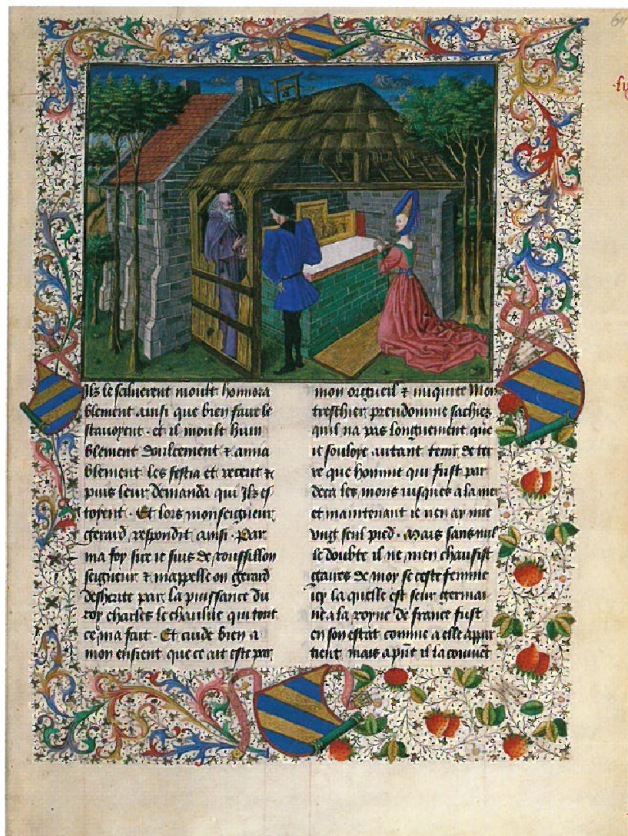 Ilz le saluerent moult honnora
blement ainsi que bien faire le
scauoyent · et il moult hum
blement doulcement et amia
blement les festia et receut et
puis leur demanda qui Ilz es
toyent · Et lors monseigneur
gerard, respondit ainsi · Par
ma foy sire ie suis de roussillon
seigneur et mappelle on gerard
desherite par la puissance du
roy charles le chaulue qui tout
ce ma fait · Et cuide bien a
mon ensient que ce ait este par
mon orgueil et iniquite Mon
treschier preudomme sachiez
quil na pas longuement que
ie souloye autant tenir de ter
re que homme qui fust par
deca les mons iusques a la mer
et maintenant ie nen ay mie
vng seul pied · Mais sans nul
le doubte il ne men chaulsist
gaires de moy se ceste femme
icy la quelle est seur germai
ne a la royne de france fust
en son estat comme a elle appar
tient mais a put il la conuiet